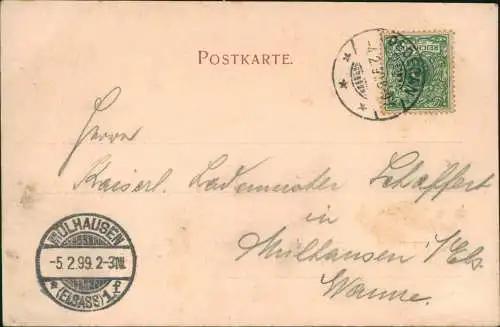 POSTKARTE.
Herrn
Kaiserl. Lademeister Schaffert
in
Mülhausen i/Els.
Wanne.
MÜLHAUSEN
-5.2.99.2-3N.
* (ELSASS) 1 f